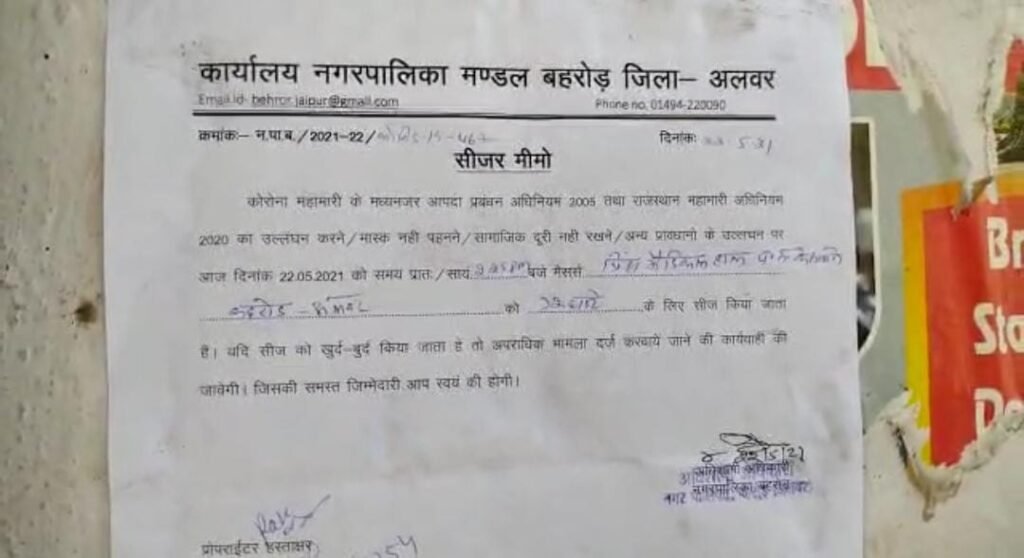 कार्यालय नगरपालिका मण्डल बहरोड़ जिला– अलवर
Email.id- behror.jaipur@gmail.com Phone no. 01494-220090
क्रमांकः– न.पा.ब./2021–22/ दिनांकः
सीजर मीमो
कोरोना महामारी के मध्यनजर आपदा प्रबंधन अधिनियम 2005 तथा राजस्थान महामारी अधिनियम
2020 का उल्लंघन करने/मास्क नही पहनने/सामाजिक दूरी नही रखने/अन्य प्रावधानो के उल्लघन पर
आज दिनांक 22.05.2021 को समय प्रातः/सायं बजे मैसर्स
को के लिए सीज किया जाता
है। यदि सीज को खुर्द–बुर्द किया जाता है तो अपराधिक मामला दर्ज करवाये जाने की कार्यवाही की
जावेगी। जिसकी समस्त जिम्मेदारी आप स्वयं की होगी।
अधिशाषी अधिकारी
नगरपालिका बहरोड़
प्रोपराईटर हस्ताक्षर
Br
Sta
De